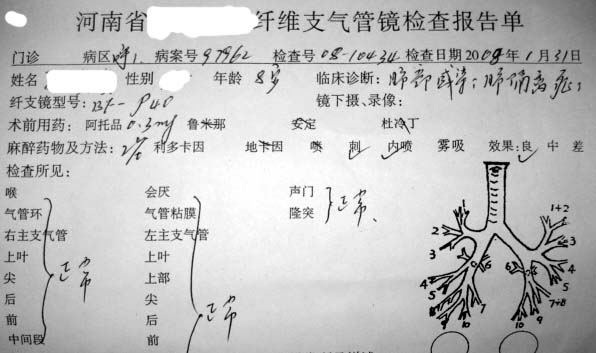 河南省 纤维支气管镜检查报告单
门诊 病区呼1 病案号97962 检查号08-10434 检查日期2008年1月31日
姓名 性别 年龄8岁 临床诊断:肺部感染;肺隔离症;
纤支镜型号:BF-P40 镜下摄、录像:
术前用药:阿托品0.3mg 鲁米那 安定 杜冷丁
麻醉药物及方法:2% 利多卡因 地卡因 喷 刺 内喷 雾吸 效果:良 中 差
检查所见:
喉 会厌 声门
气管环 气管粘膜 隆突 正常、
右主支气管 左主支气管
上叶 上叶
尖 正常 上部
后 尖
前 后 正常
中间段 前
1+2
1
2
3
3
4
5
6
6
4
5
7
8
9
10
10
9
7+8